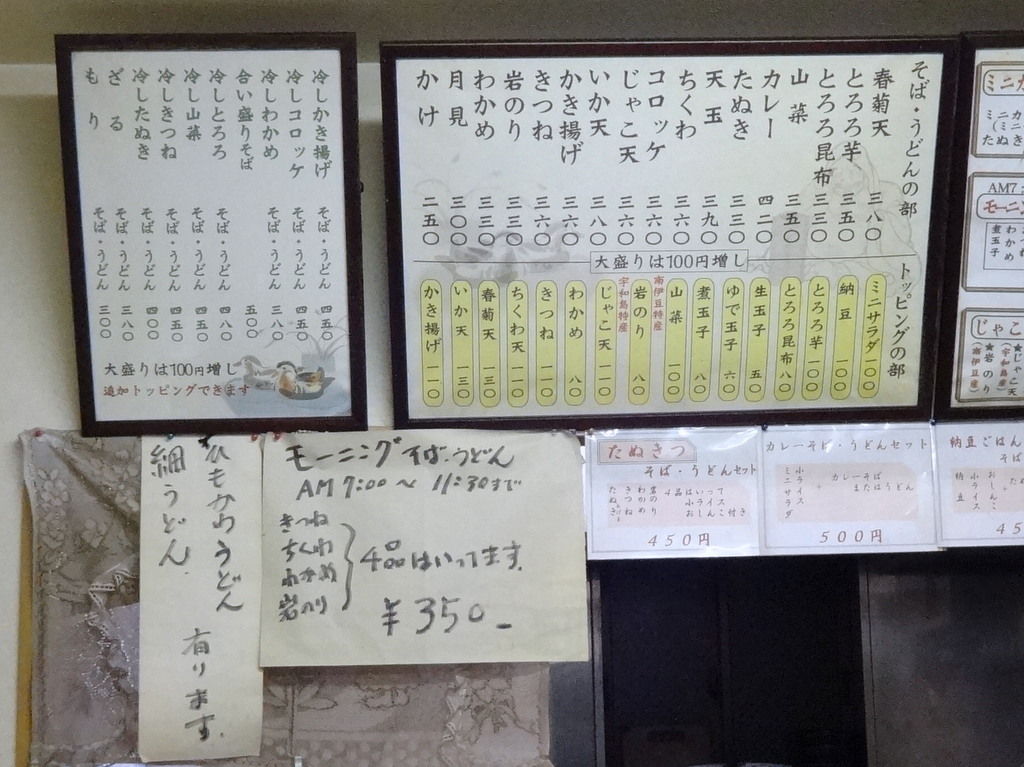 冷しかき揚げ そば・うどん 四五〇
冷しコロッケ そば・うどん 四五〇
冷しわかめ そば・うどん 三八〇
合い盛りそば 五〇〇
冷しとろろ そば・うどん 四八〇
冷し山菜 そば・うどん 四五〇
冷しきつね そば・うどん 四五〇
冷したぬき そば・うどん 四〇〇
ざる そば・うどん 三八〇
もり そば・うどん 三〇〇
大盛りは100円増し
追加トッピングできます
そば・うどんの部
春菊天 三八〇
とろろ芋 三五〇
とろろ昆布 三三〇
山菜 三五〇
カレー 四二〇
たぬき 三三〇
天玉 三九〇
ちくわ 三六〇
コロッケ 三六〇
じゃこ天 三六〇
いか天 三八〇
かき揚げ 三六〇
きつね 三六〇
岩のり 三三〇
わかめ 三三〇
月見 三〇〇
かけ 二五〇
大盛りは100円増し
トッピングの部
ミニサラダ 一〇〇
納豆 一〇〇
とろろ芋 一〇〇
とろろ昆布 八〇
生玉子 五〇
ゆで玉子 六〇
煮玉子 八〇
山菜 一〇〇
南伊豆特産
岩のり 八〇
宇和島特産
じゃこ天 一一〇
わかめ 八〇
きつね 一一〇
ちくわ天 一一〇
春菊天 一三〇
いか天 一三〇
かき揚げ 一一〇
ミニカ
ミニカ
(ミニ
たぬき
AM7
モーニ
わかめ
煮玉子
じゃこ
★じゃこ天
(宇和島産)
★岩のり
(南伊豆産)
衣もかわうどん
細うどん 有ります
モーニング そば・うどん
AM 7:00～11:30まで
きつね
ちくわ
わかめ
岩のり
4品はいってます
¥350-
たぬきつ
そば・うどんセット
4品はいって
小ライス
おしんこ付き
450円
カレーそば・うどんセット
カレーそば
またはうどん
+
小ライス
ミニサラダ
500円
納豆ごはん
そば
45